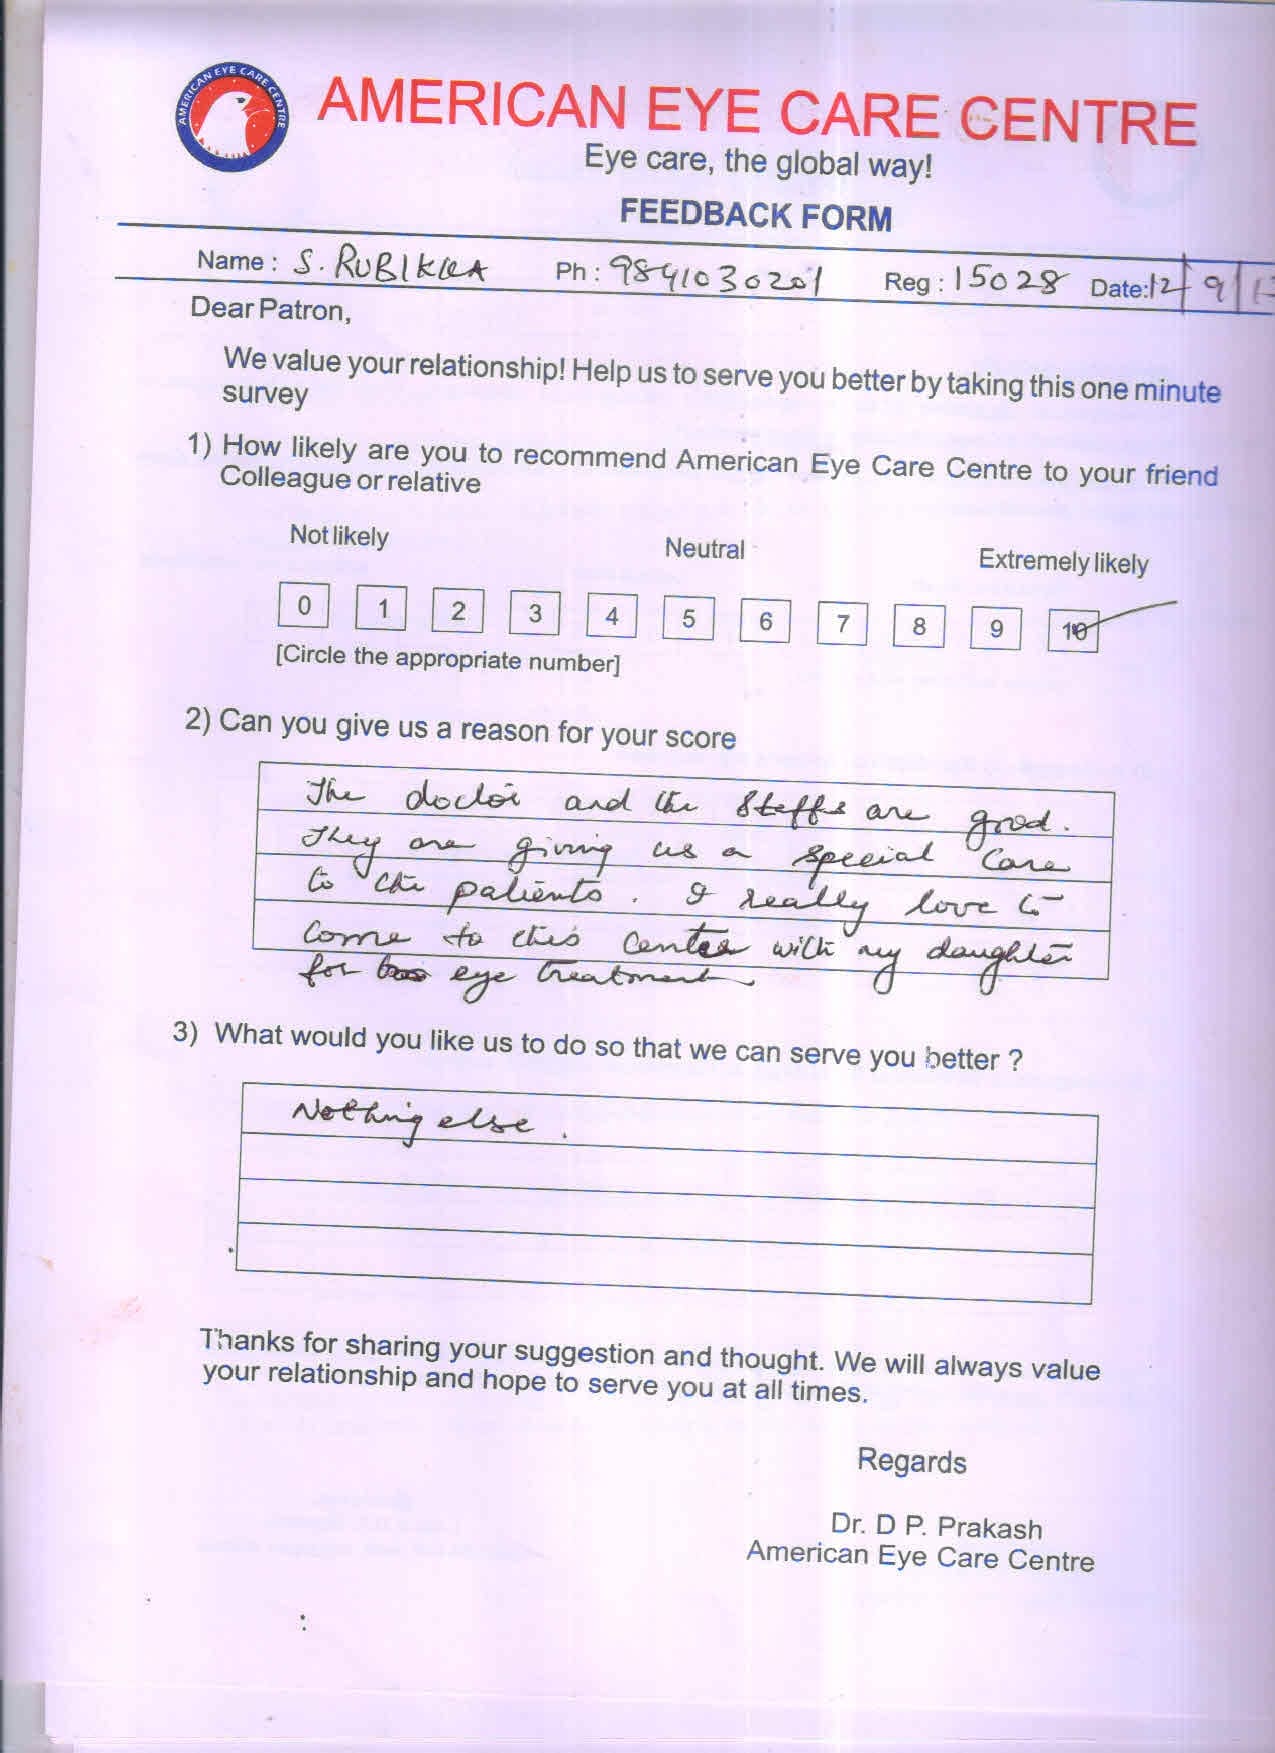 AMERICAN EYE CARE CENTRE
AMERICAN EYE CARE CENTRE
Eye care, the global way!
FEEDBACK FORM
Name : S. RUBIKKA Ph : 9841030201 Reg : 15028 Date: 12/9/
Dear Patron,
We value your relationship! Help us to serve you better by taking this one minute
survey
1) How likely are you to recommend American Eye Care Centre to your friend
Colleague or relative
Not likely Neutral Extremely likely
0 1 2 3 4 5 6 7 8 9 10
[Circle the appropriate number]
2) Can you give us a reason for your score
The doctor and the staffs are good.
They are giving us a special care
to the patients. I really love to
come to this center with my daughter
for eye treatment
3) What would you like us to do so that we can serve you better ?
Nothing else.
Thanks for sharing your suggestion and thought. We will always value
your relationship and hope to serve you at all times.
Regards
Dr. D P. Prakash
American Eye Care Centre